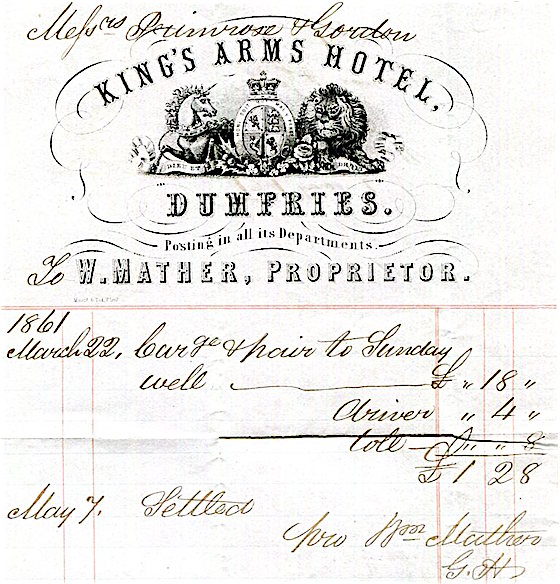 Messrs Primrose & Gordon
KING'S ARMS HOTEL,
DIEU ET
DUMFRIES.
Posting in all its Departments.
To W. MATHER, PROPRIETOR.
1861
March 22, Carge & pair to Sunday
well £ „ 18 „
driver „ 4 „
toll „ „ 8
£ 1 2 8
May 7. Settled
pro Wm Mather
G. H